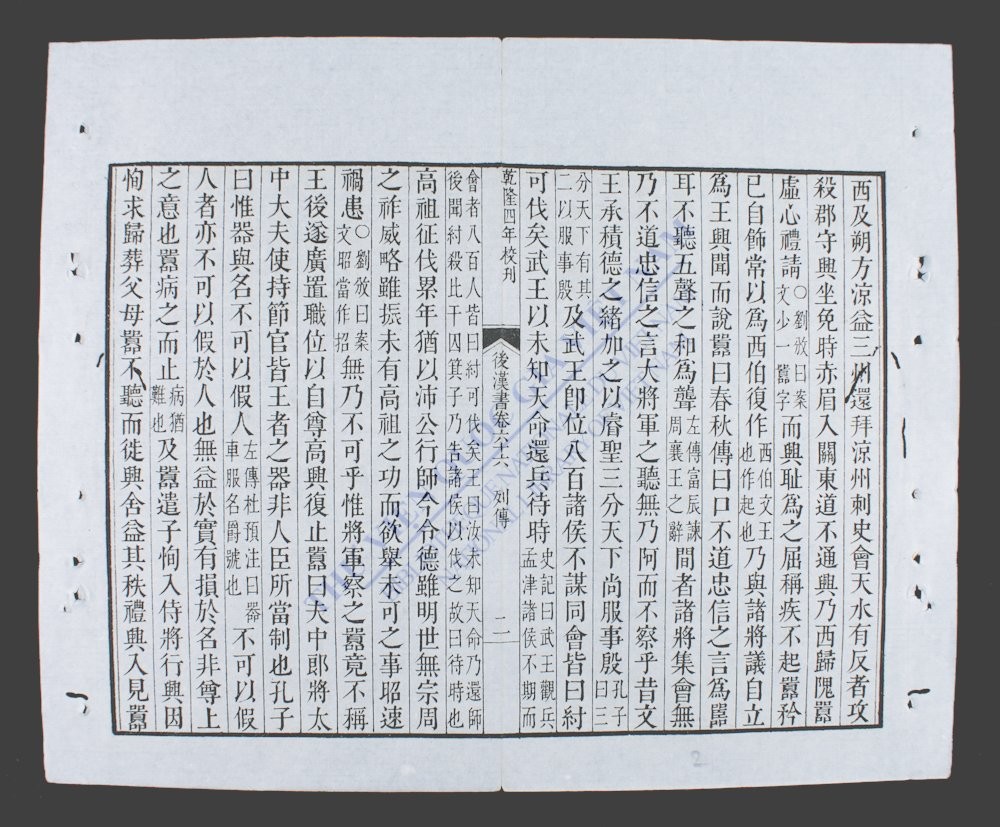 西及朔方凉益三州還拜凉州刺史會天水有反者攻
殺郡守興坐免時赤眉入關東道不通興乃西歸隗囂
虛心禮請○劉攽曰案文少一囂字而興恥爲之屈稱疾不起囂矜
已自飾常以爲西伯復作西伯文王也作起也乃與諸將議自立
爲王興聞而說囂曰春秋傳曰口不道忠信之言爲嚚
耳不聽五聲之和爲聾左傳富辰諫周襄王之辭間者諸將集會無
乃不道忠信之言大將軍之聽無乃阿而不察乎昔文
王承積德之緒加之以睿聖三分天下尚服事殷孔子曰三
分天下有其二以服事殷及武王即位八百諸侯不謀同會皆曰紂
可伐矣武王以未知天命還兵待時史記曰武王觀兵孟津諸侯不期而
乾隆四年校刊
後漢書卷六十六 列傳
二
會者八百人皆曰紂可伐矣王曰汝未知天命乃還師後聞紂殺比干囚箕子乃告諸侯以伐之故曰待時也
高祖征伐累年猶以沛公行師今令德雖明世無宗周
之祚威略雖振未有高祖之功而欲舉未可之事昭速
禍患○劉攽曰案文昭當作招無乃不可乎惟將軍察之囂竟不稱
王後遂廣置職位以自尊高興復止囂曰夫中郎將太
中大夫使持節官皆王者之器非人臣所當制也孔子
曰惟器與名不可以假人左傳杜預注曰器車服名爵號也不可以假
人者亦不可以假於人也無益於實有損於名非尊上
之意也囂病之而止病猶難也及囂遣子恂入侍將行興因
恂求歸葬父母囂不聽而徙興舍益其秩禮興入見囂
THƯ VIỆN QUỐC GIA VIỆT NAM
BIBLIOTHÈQUE NATIONALE DU VIETNAM
NATIONAL LIBRARY OF VIETNAM
2